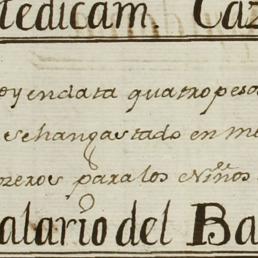 Medicam. Caz
oy en data quatro pesos
se han gastado en me
reros para los Niños
alario del Ba